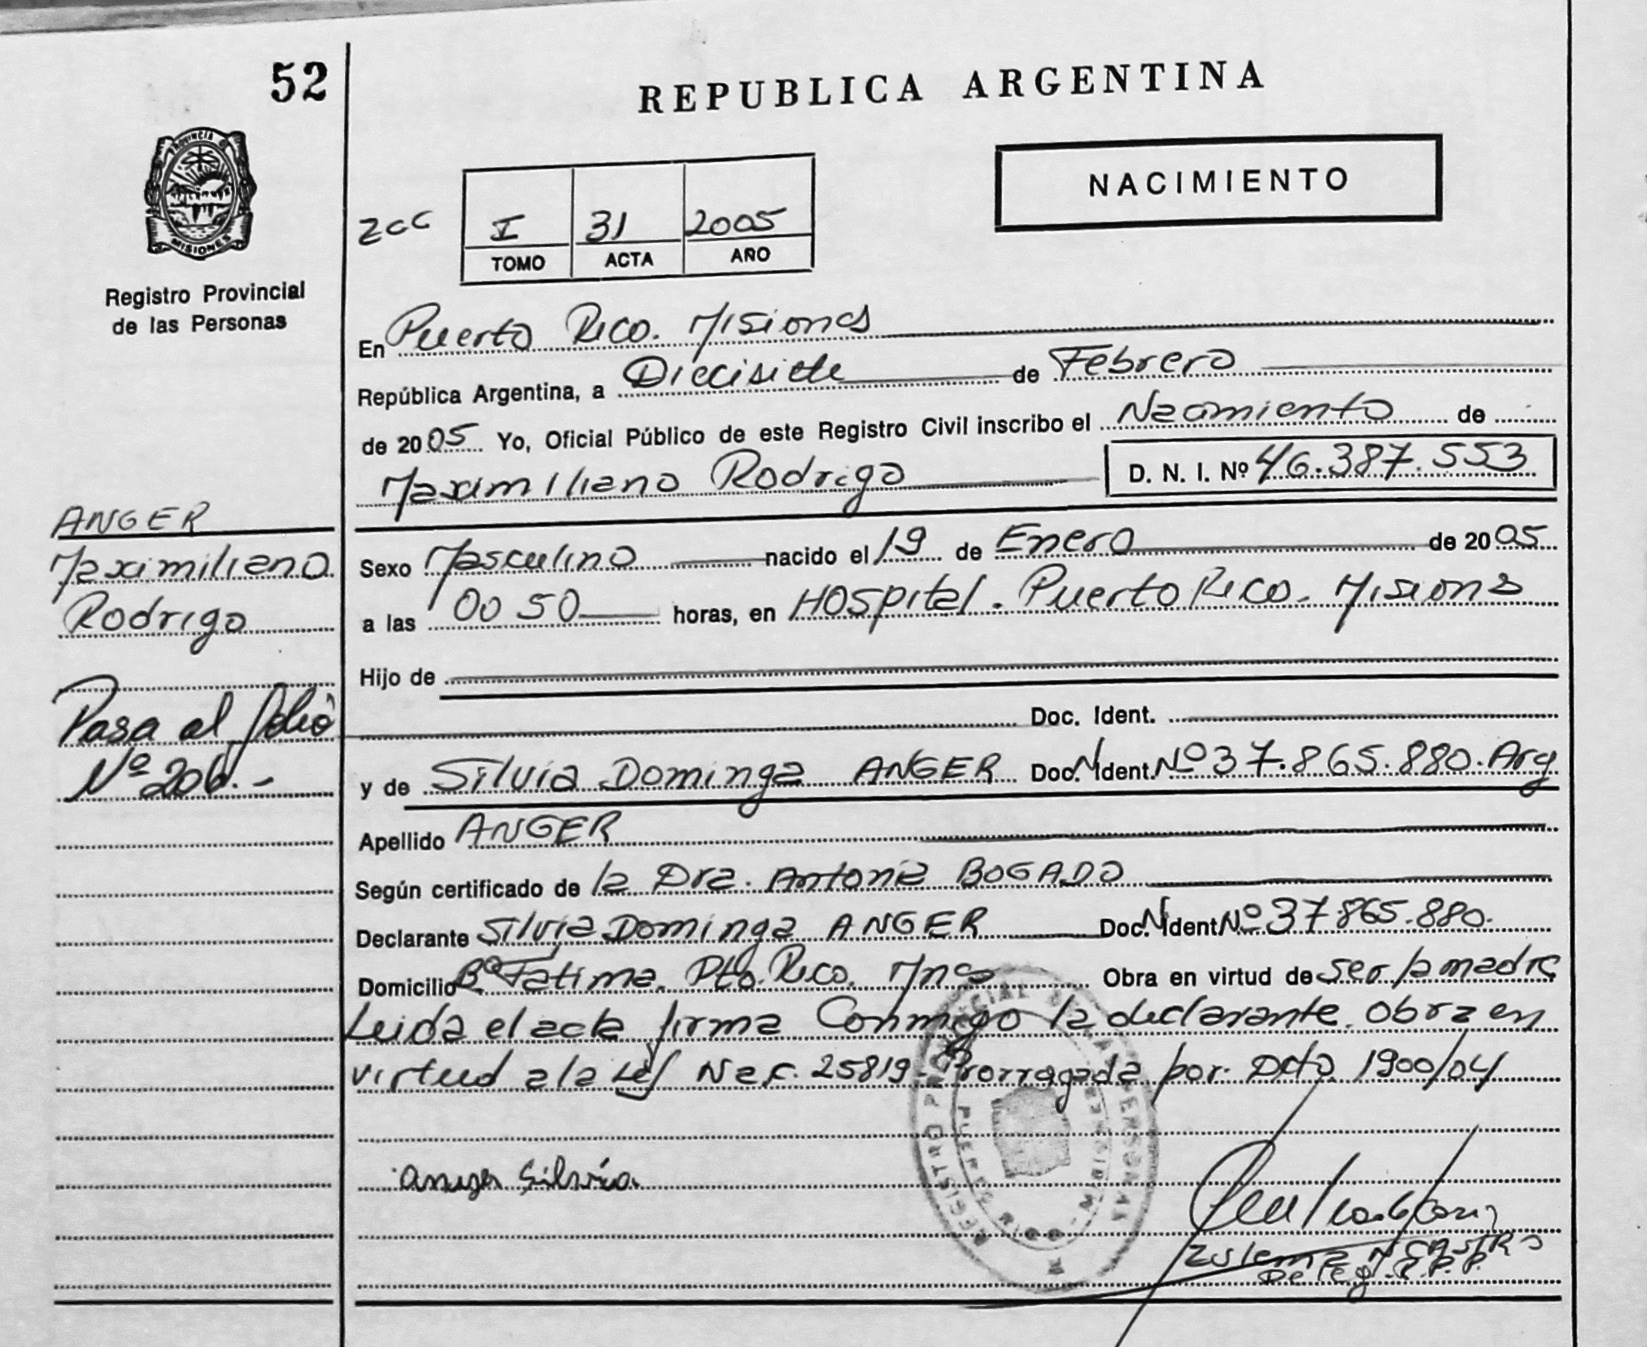 52
REPUBLICA ARGENTINA
PROVINCIA D
MISIONES
Registro Provincial
de las Personas
NACIMIENTO
zcc
I 31 2005
TOMO ACTA AÑO
En Puerto Rico. Misiones
República Argentina, a Diecisiete de Febrero
de 2005 Yo, Oficial Público de este Registro Civil inscribo el Nacimiento de
Maximiliano Rodrigo D. N. I. Nº 46.387.553
ANGER
Maximiliano
Rodrigo
Pasa al folio
Nº 206.-
Sexo Masculino nacido el 19 de Enero de 2005
a las 00 50 horas, en Hospital. Puerto Rico. Misions
Hijo de
Doc. Ident.
y de Silvia Dominga ANGER Doc. N Ident. Nº 37.865.880. Arg
Apellido ANGER
Según certificado de la Dra. Antonia BOGADO
Declarante Silvia Dominga ANGER Doc. N Ident Nº 37865.880.
Domicilio Bº Fatima. Pto. Rico. Mnes Obra en virtud de ser la madre
Leida el acta firma Conmigo la declarante. Obra en
virtud a la Ley Nac. 25819. Prorragada por. Dcto 1900/04
Anger Silvia.
REGISTRO PROVINCIAL DE LAS PERSONAS
PUERTO RICO - MISIONES
Zulema N. CASTRO
Deleg. R.P.P.